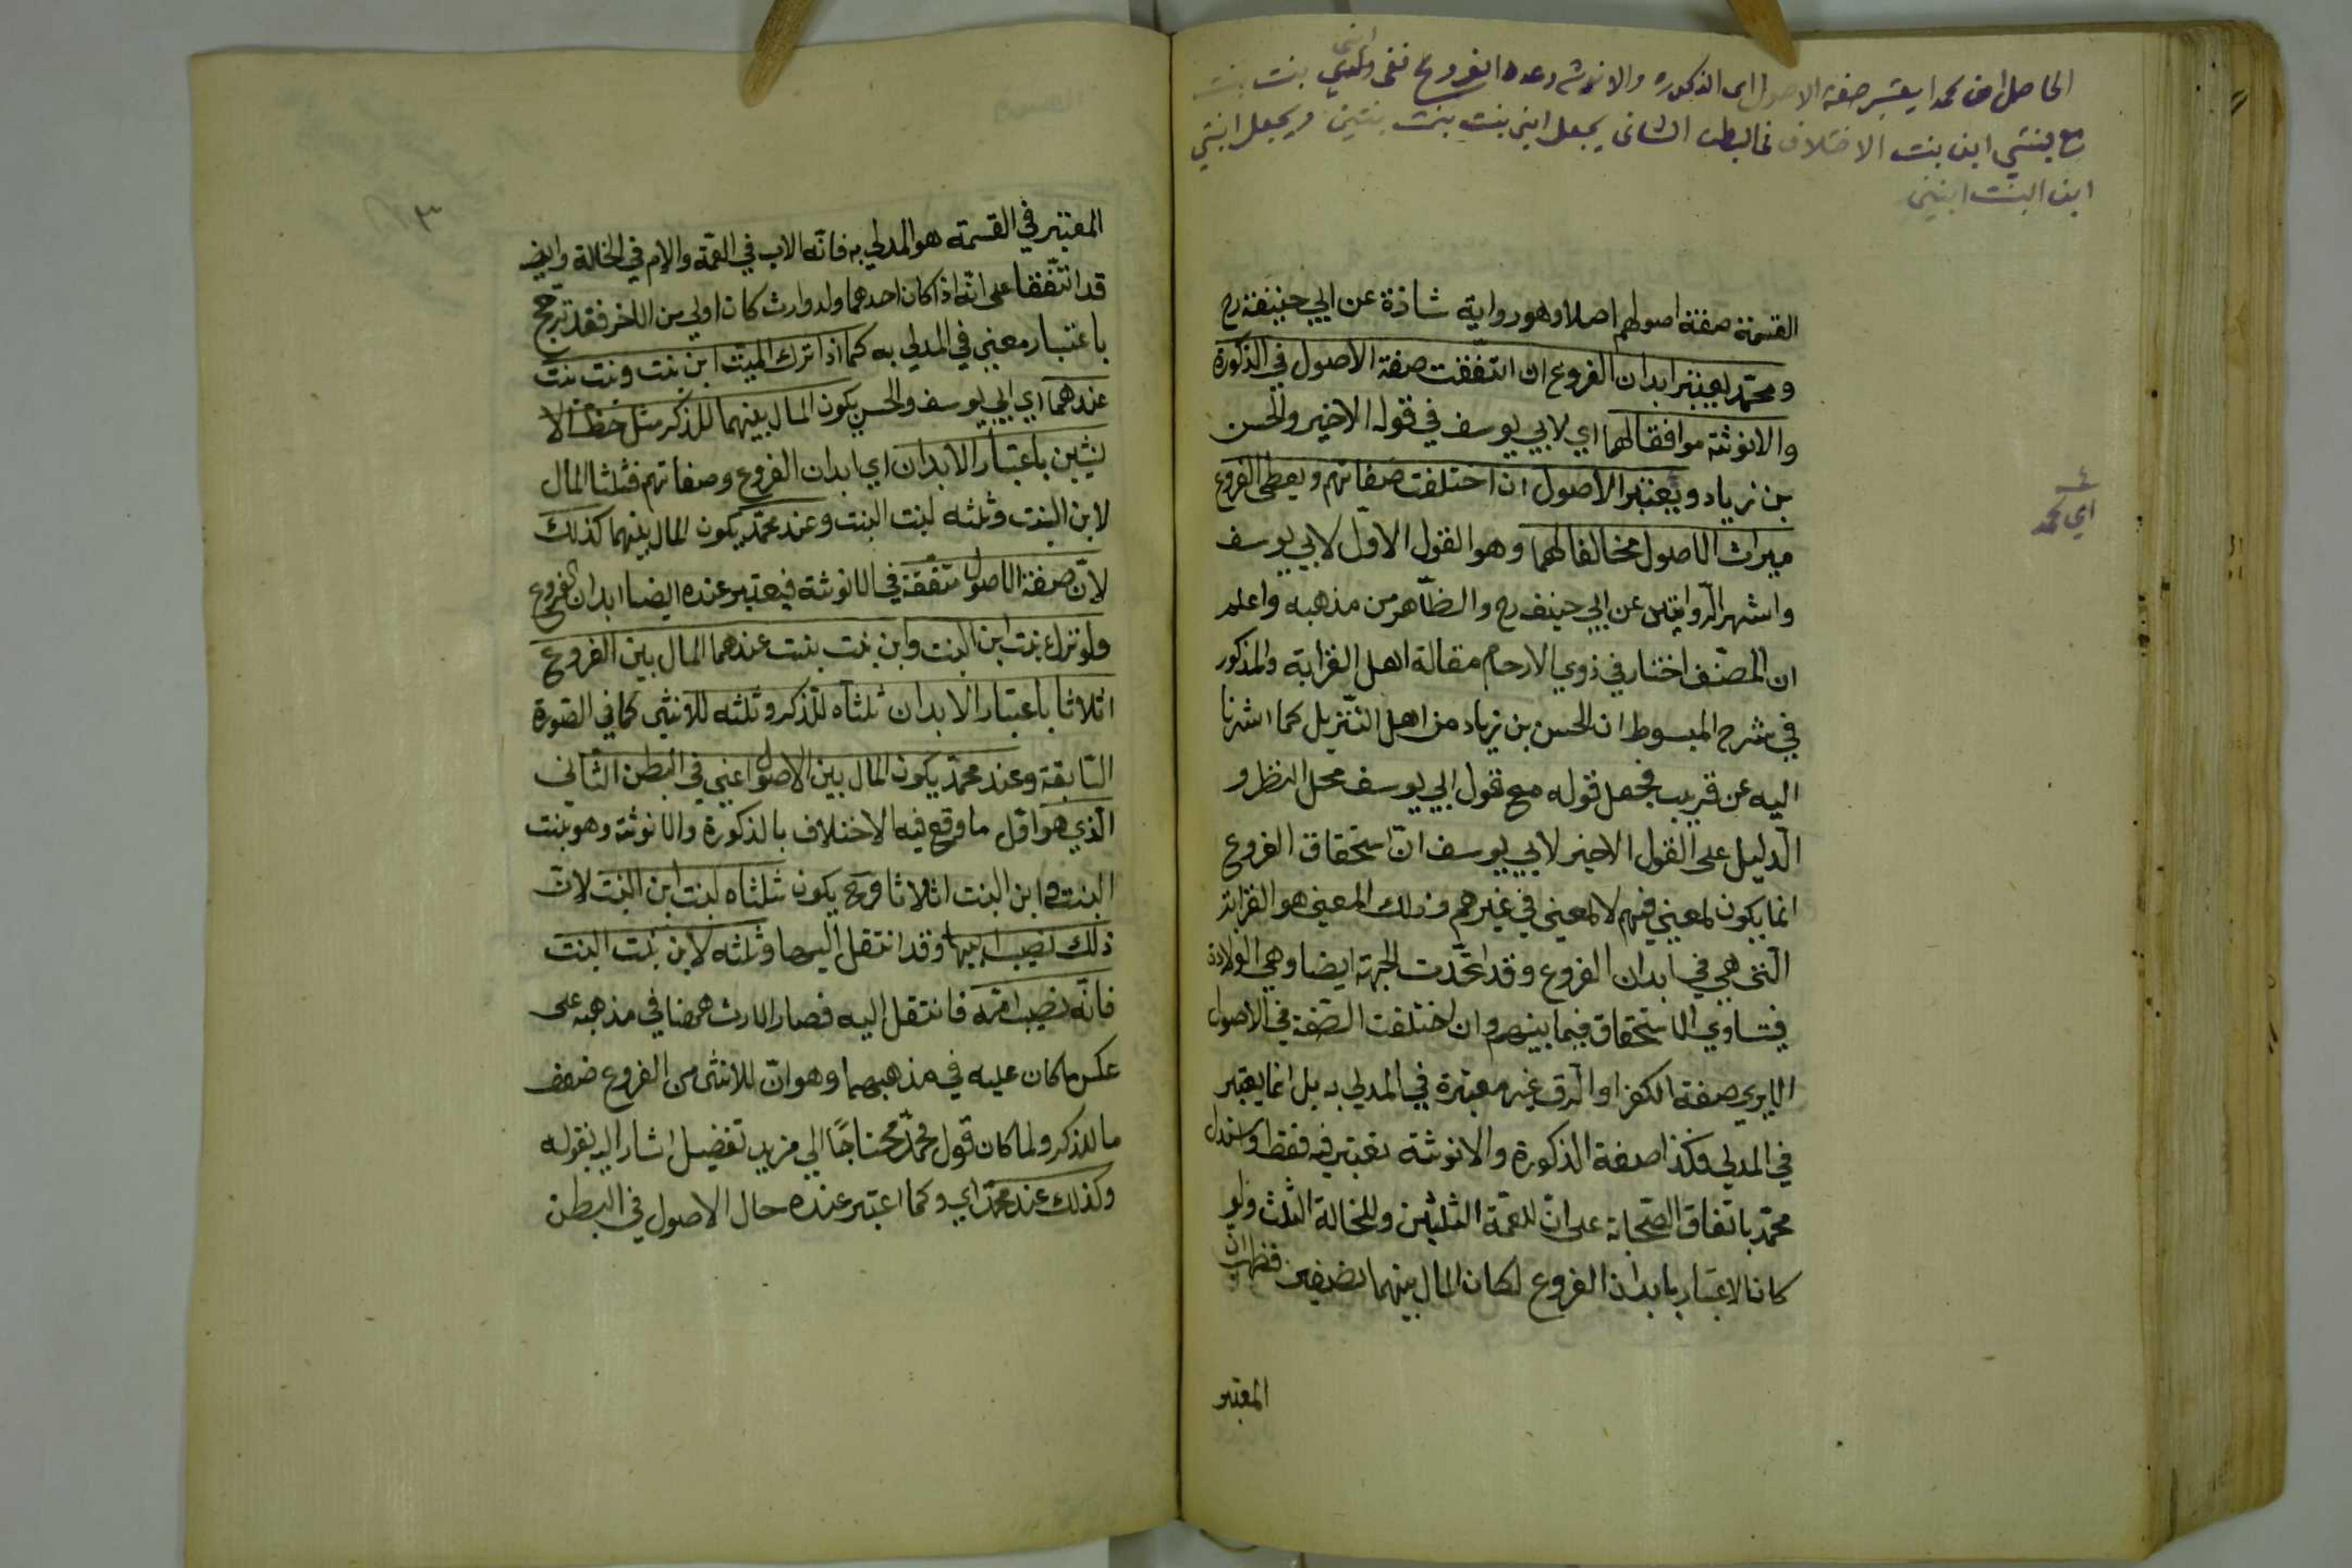 الحاصل ان محمدا يعتبر صفة الاصول اى الذكوره والانوثه وعدد الفروع ففى ابنى بنت بنت
مع بنتي ابن بنت الاختلاف فى البطن الثانى يجعل ابنى بنت بنت بنتين ويجعل ابنتي
ابن البنت ابنين
القسمة صفة اصولهم اصلا وهو رواية شاذة عن ابي حنيفة رح
ومحمد يعتبر ابدان الفروع ان اتّفقت صفة الاصول في الذكورة
والانوثة موافقا لهما اي لابي يوسف في قوله الاخير والحسن
بن زياد ويعتبر الاصول ان اختلفت صفاتهم ويعطى الفروع
ميراث الاصول مخالفا لهما وهو القول الاول لابي يوسف
واشهر الروايتين عن ابي حنيفه رح والظاهر من مذهبه واعلم
ان المصنّف اختار في ذوي الارحام مقالة اهل القرابة والمذكور
في شرح المبسوط ان الحسن بن زياد من اهل التنزيل كما اشرنا
اليه عن قريب فجعل قوله مع قول ابي يوسف محل النظر و
الدليل على القول الاخير لابي يوسف انّ استحقاق الفروع
انما يكون لمعنى فيهم لا لمعنى في غيرهم وذلك المعنى هو القرابة
التي هي في ابدان الفروع وقد اتّحدت الجهة ايضا وهي الولادة
فيتساوي الاستحقاق فيما بينهم وان اختلفت الصّفة في الاصول
الا يرى صفة الكفر او الرق غير معتبرة في المدلي به بل انما يعتبر
في المدلي فكذا صفة الذكورة والانوثة تعتبر فيه فقط واستدل
محمّد باتفاق الصّحابة على انّ للعمّة الثلثين وللخالة الثلث ولو
كان الاعتبار بابدان الفروع لكان المال بينهما نصفين فظهر ان
المعتبر
اي محمد
٣
المعتبر في القسمة هو المدلي به فانّه الاب في العمّة والام في الخالة وايض
قد اتّفقا على انّه اذا كان احدهما ولد وارث كان اولى من الاخر فقد ترجح
باعتبار معنى في المدلي به كما اذا ترك الميّت ابن بنت وبنت بنت
عندهما اي ابي يوسف والحسن يكون المال بينهما للذكر مثل حظّ الا
نثيين باعتبار الابدان اي ابدان الفروع وصفاتهم فثلثا المال
لابن البنت وثلثه لبنت البنت وعند محمّد يكون المال بينهما كذلك
لانّ صفة الاصول متّفقة في الانوثة فيعتبر عنده ايضا ابدان الفروع
ولو ترك بنت ابن البنت وابن بنت بنت عندهما المال بين الفروع
اثلاثا باعتبار الابدان ثلثاه للذكر وثلثه للانثى كما في الصّورة
السّابقة وعند محمّد يكون المال بين الاصول اعني في البطن الثّاني
الّذي هو اول ما وقع فيه الاختلاف بالذكورة والانوثة وهو بنت
البنت وابن البنت اثلاثا وح يكون ثلثاه لبنت ابن البنت لانّ
ذلك نصيب ابيها وقد انتقل اليها وثلثه لابن بنت البنت
فانّه نصيب امّه فانتقل اليه فصار الارث ههنا في مذهبه على
عكس ما كان عليه في مذهبهما وهو انّ للانثى من الفروع ضعف
ما للذكر ولما كان قول محمّد محتاجًا الى مزيد تفصيل اشار اليه بقوله
وكذلك عند محمّد اي وكما اعتبر عنده حال الاصول في البطن